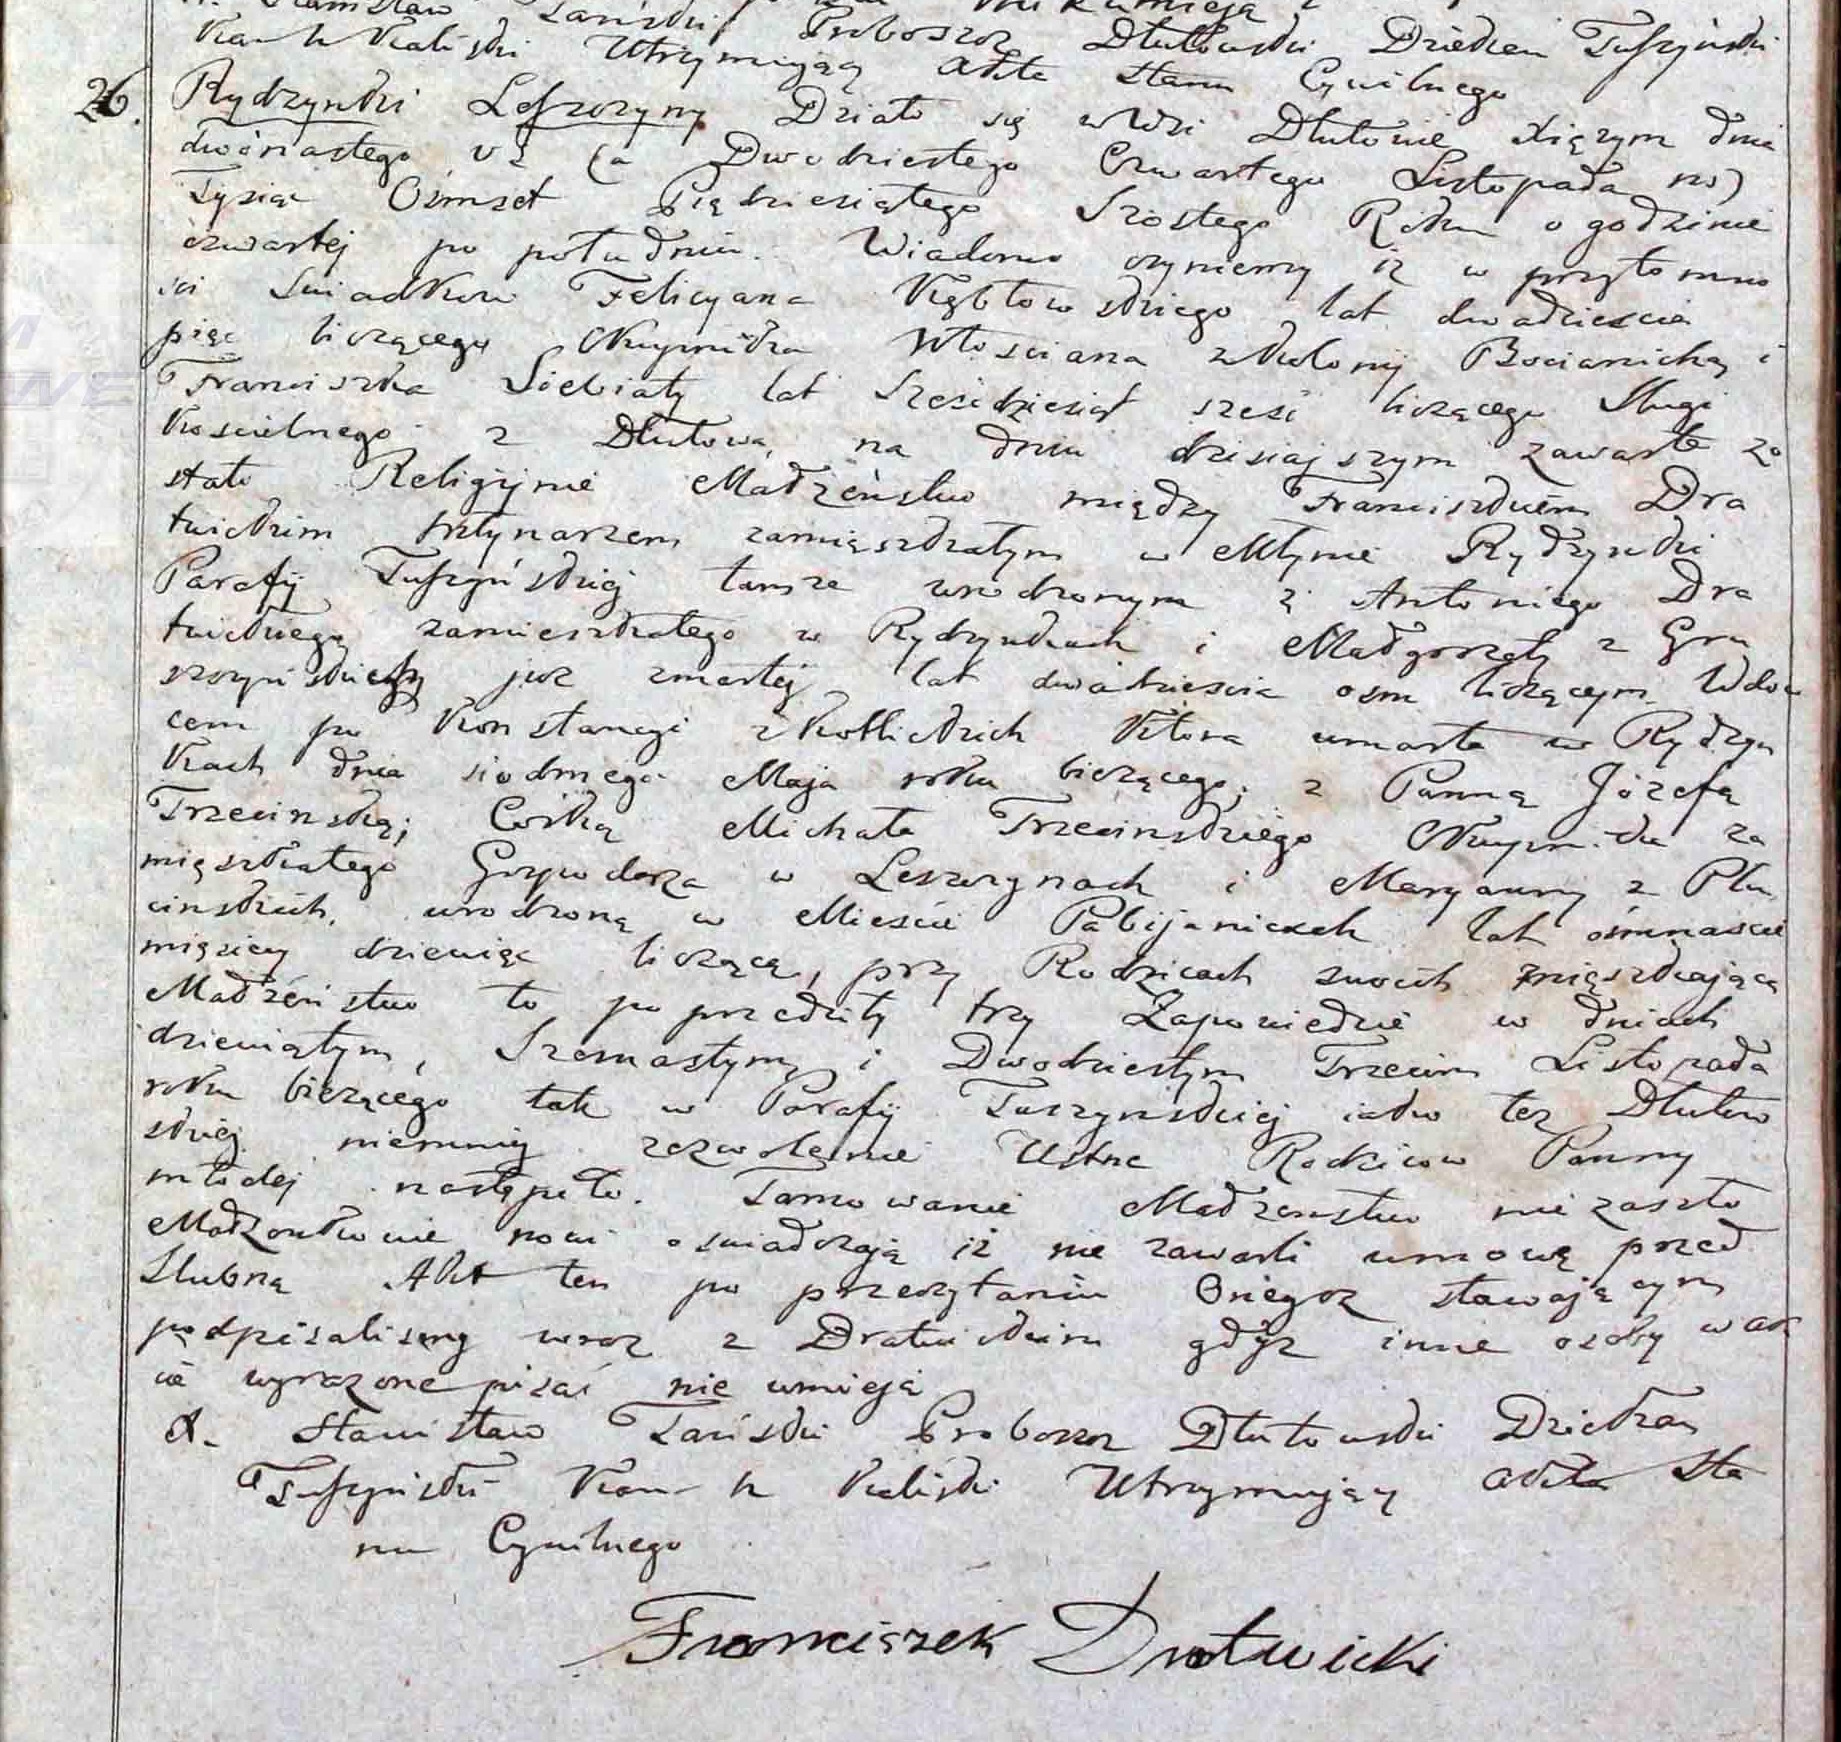 X. Stanisław Tański Proboszcz Dłutowski Dziekan Tuszyński
Kan h Kaliski Utrzymując Akta Stanu Cywilnego
26. Rydzynki Leszczyny Działo się w Wsi Dłutowie Xiężym dnia
dwónastego v s (a Dwudziestego Czwartego Listopada ns)
Tysiąc Ośmset Piędziesiątego Szóstego Roku o godzinie
czwartej po południu. Wiadomo czyniemy iż w przytomno
ści Swiadków Felicyana Kębłowskiego lat dwadzieścia
pięć liczącego Okupnika Włościana z Kolonij Bocianichy i
Franciszka Siebiaty lat Sześćdziesiąt sześć liczącego Sługi
Kościelnego z Dłutowa, na dniu dzisiajszym zawarte zo
stało Religijnie Madżeństwo między Franciszkiem Dra
twickim Młynarzem zamięszkałym w Młynie Rydzynki
Parafij Tuszyńskiej tamże urodzonym z Antoniego Dra
twickiego zamieszkałego w Rydzynkach i Małgorzaty z Gru
szczyńskich już zmarłej lat dwadzieścia ośm liczącym Wdow
cem po Konstancyi z Kotlickich Która umarła w Rydzyn
Kach dnia siódmego Maja roku bieżącego; z Panną Józefą
Trzecinską; Córką Michała Trzecinskiego Okupnika za
mięszkałego Gospodarza w Leszczynach i Maryanny z Plu
cinskich, urodzoną w Mieście Pabijanicach lat ośmnaście
mięsięcy dziewięć liczącą, przy Rodzicach swoich mięszkającą
Madżeństwo to poprzedziły trzy Zapowiedzie w dniach
dziewiątym, Szesnastym i Dwodziestym Trzecim Listopada
roku bieżącego tak w Parafij Tuszynskiej iako tez Dłutow
skiej niemniej zezwolenie Ustne Rodziców Panny
młodej nastąpiło. Tamowanie Madżenstwa nie zaszło
Madżonkowie nowi oswiadczają iż nie zawarli umowę przed
Slubną Akt ten po przeczytaniu Onegoż stawającym
podpisalismy wraz z Dratwickim gdyż inne osoby w ak
cie wyrażone pisać nie umieją
X. Stanisław Tański Proboszcz Dłutowski Dziekan
Tuszyński Kan h Kaliski Utrzymujący Akta Sta
nu Cywilnego
Franciszek Dratwicki